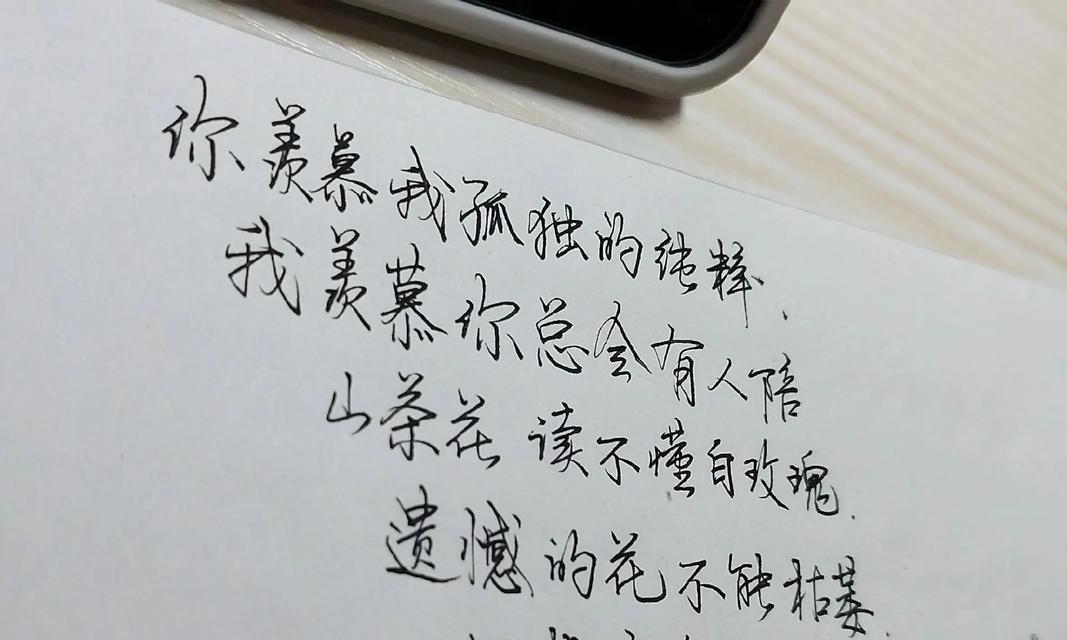 你羡慕我孤独的纯粹、
我羡慕你总会有人陪
山茶花 读不懂白玫瑰.
遗憾的花不能枯萎